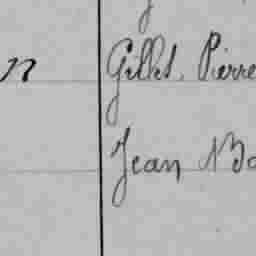 n Gillet, Pierre
Jean Ba